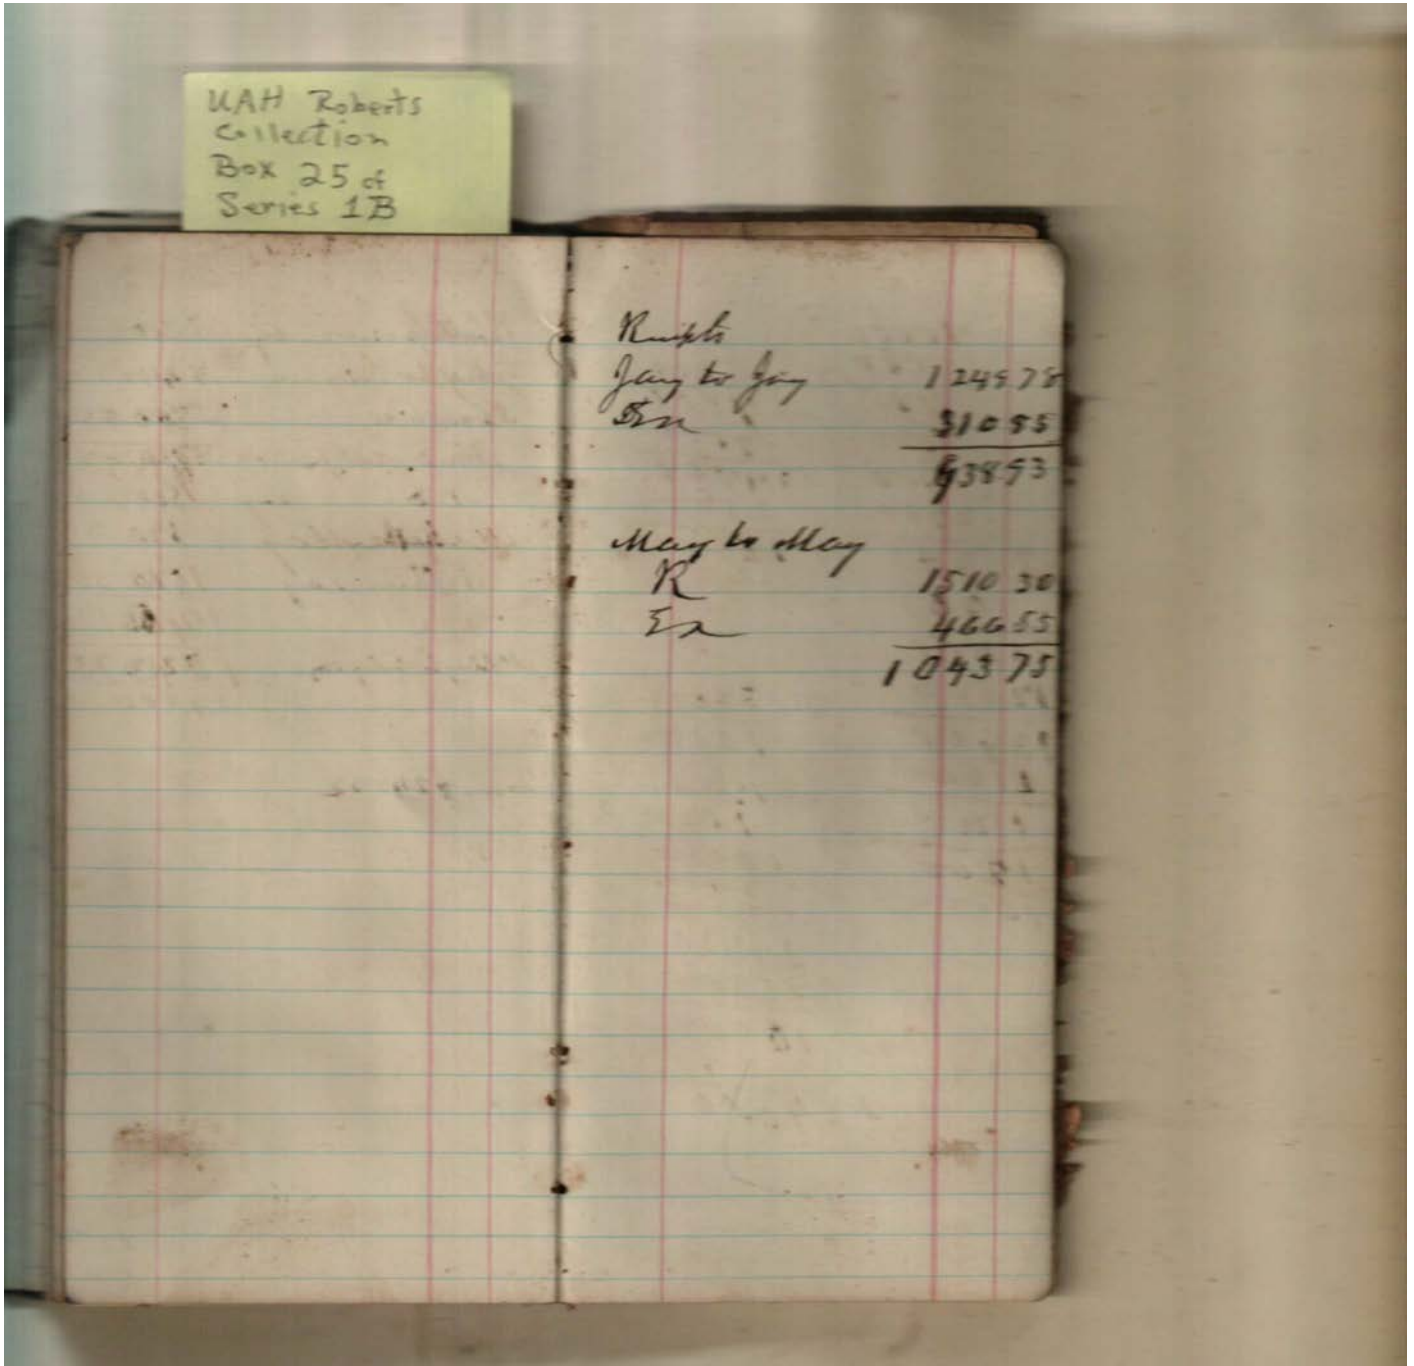 UAH Roberts
Collection
Box 25 of
Series 1B
Receipts
Jany to Jany 1249 78
Ex 310 85
938 93
May to May
R 1510 30
Ex 466 55
1043 75